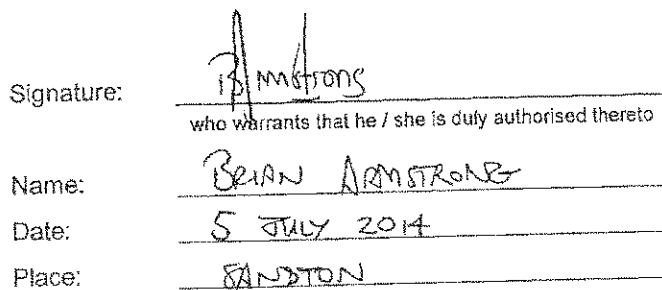 Signature: BArmstrong
who warrants that he / she is duly authorised thereto
Name: BRIAN ARMSTRONG
Date: 5 JULY 2014
Place: SANDTON